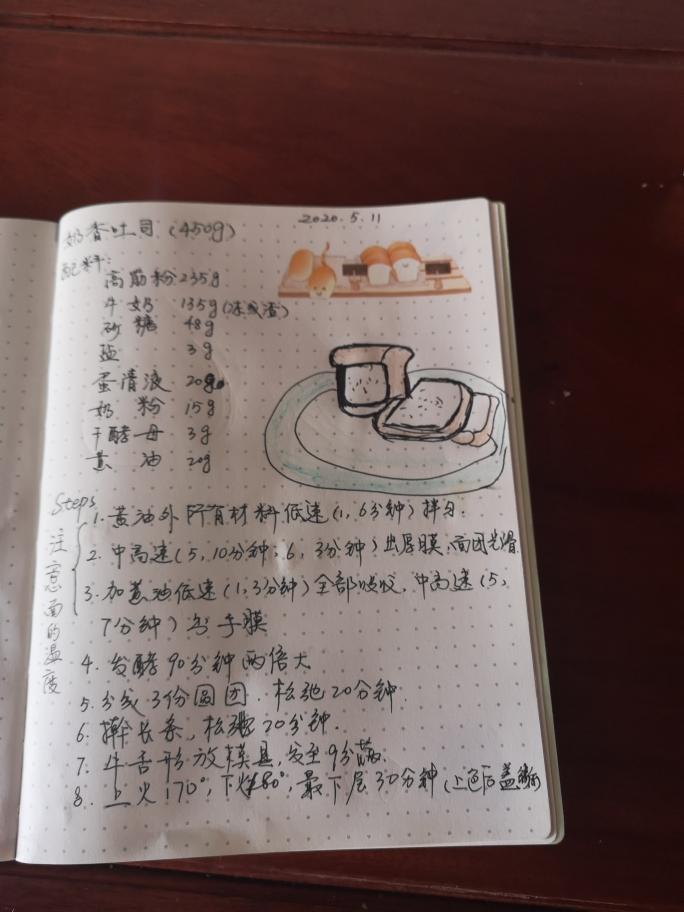 2020.5.11
奶香吐司(450g)
配料:
高筋粉 235g
牛奶 135g(冻成渣)
砂糖 48g
盐 3g
蛋清液 20g
奶粉 15g
干酵母 3g
黄油 20g
Steps
注意面的温度
1. 黄油外所有材料低速(1,6分钟)拌匀.
2. 中高速(5,10分钟;6,3分钟)出厚膜,面团光滑
3. 加黄油低速(1,3分钟)全部吸收,中高速(5,
7分钟)出手膜
4. 发酵90分钟两倍大
5. 分成3份圆团.松弛20分钟
6. 擀长条,松弛20分钟.
7. 牛舌形放模具,发至9分满
8. 上火170°,下火180°,最下层30分钟(上色后盖